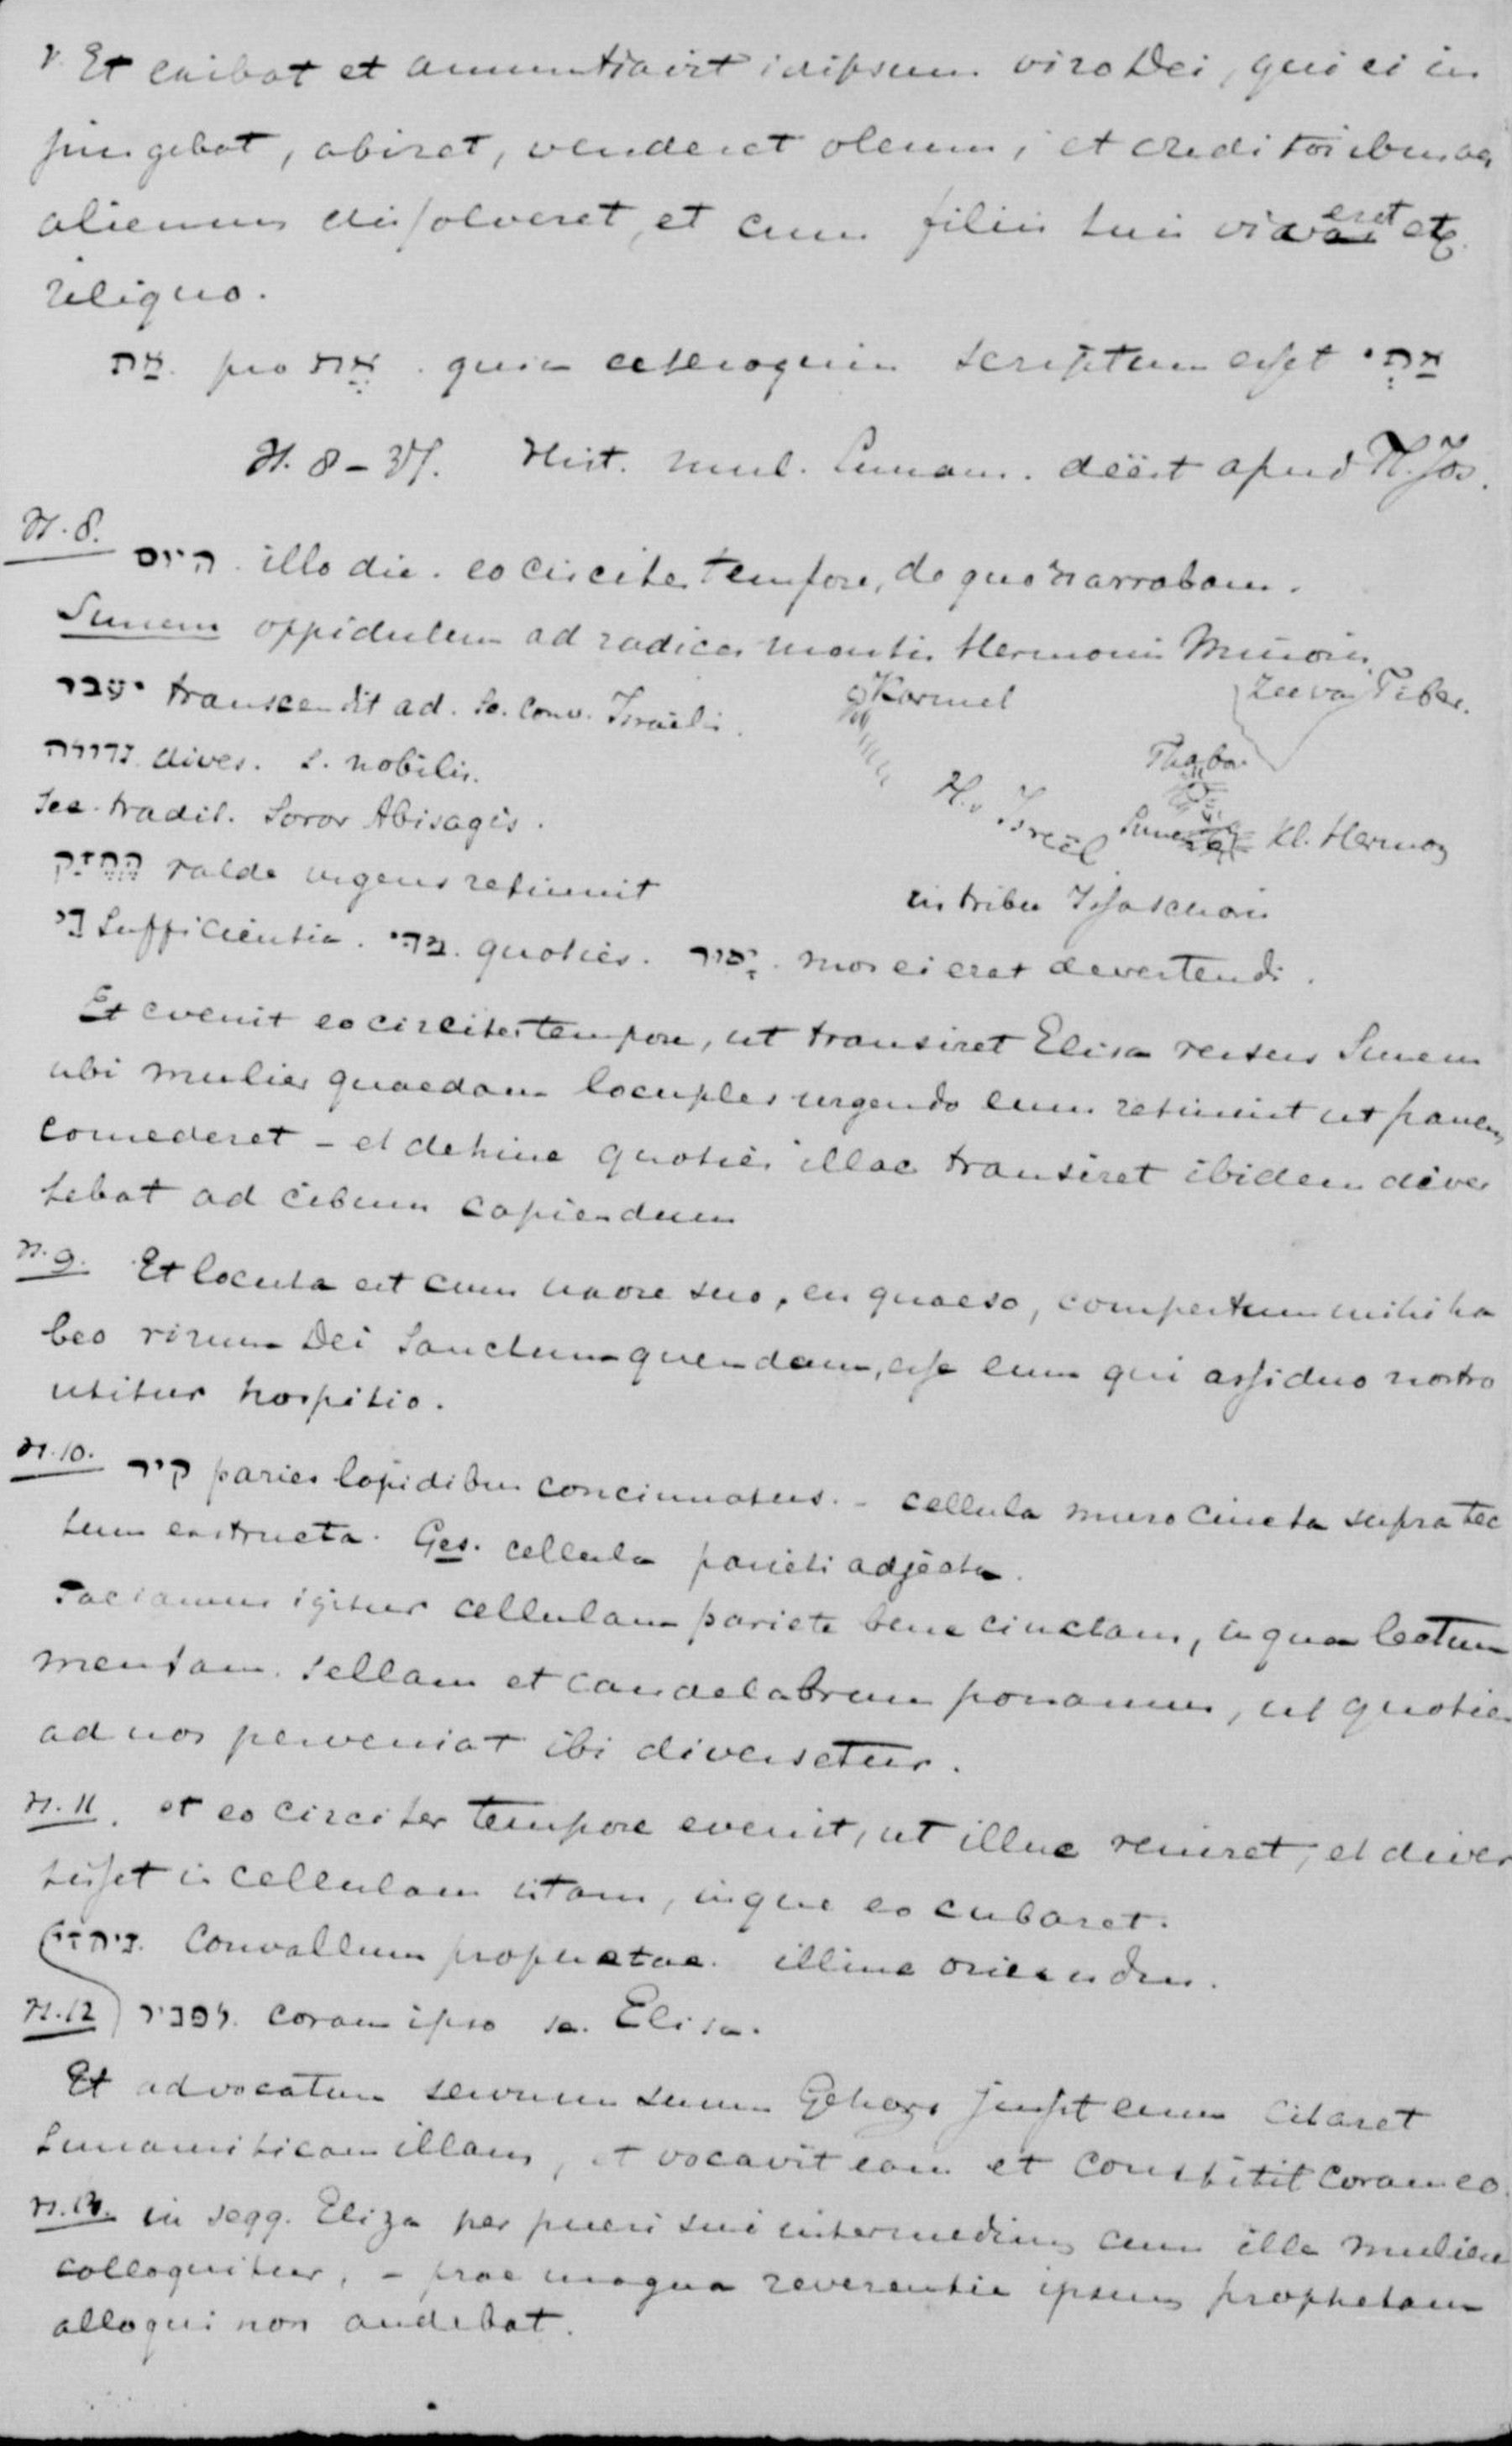 v. Et exibat et annuntiavit idipsum viro Dei, qui ei in
jungebat, abiret, venderet oleum, et creditoribus aes
alienum dissolveret, et cum filiis suis viveret et
reliquo.
אַתְּ pro אתי quia ceteroquin scriptum esset
N. 8 - 37. Hist. mul. Sunam. deëst apud Fl. Jos.
N. 8.
היום illo die. eo circiter tempore, de quo narrabam.
Sunem oppidulum ad radices montis Hermonis Minoris
יעבר transcendit ad. sc. conv. Israelis.
Karmel
See von Tiber.
גדולה dives. s. nobilis.
Thabor
Sec. tradit. Soror Abisagis.
Isreël
Sunem
Kl. Hermon
החזק valde urgens retinuit
in tribu Isaschari
די Sufficientia. מדי quoties. יסור mos ei erat devertendi.
Et evenit eo circiter tempore, ut transiret Elisa versus Sunem
ubi mulier quaedam locuples urgendo eum retinuit ut panem
comederet - et dehinc quoties illac transiret ibidem diver
tebat ad cibum capiendum
N. 9. Et locuta est cum uxore suo, en quaeso, compertum mihi ha
beo virum Dei Sanctum quendam, esse eum qui assiduo nostro
utitur hospitio.
N. 10. קיר paries lapidibus concinnatus. - cellula muro cincta supra tec
tum exstructa. Ges. cellula parieti adjecta.
Faciamus igitur cellulam pariete bene cinctam, in qua lectum
mensam, sellam et candelabrum ponamus, ut quoties
ad nos perveniat ibi diversetur.
N. 11. et eo circiter tempore evenit, ut illuc veniret, et diver
tisset in cellulam istam, inque eo cubaret.
גיחזי. Convallum prophetae. illinc oriundus.
N. 12 לפניו. coram ipso sc. Elisa.
Et advocatum servum suum Gehazi jussit eum citaret
Sunamiticam illam, et vocavit eam et constitit coram eo.
N. 13. in seqq. Eliza per pueri sui intermedium cum illa muliere
colloquitur, - prae magna reverentia ipsum prophetam
alloqui non audebat.